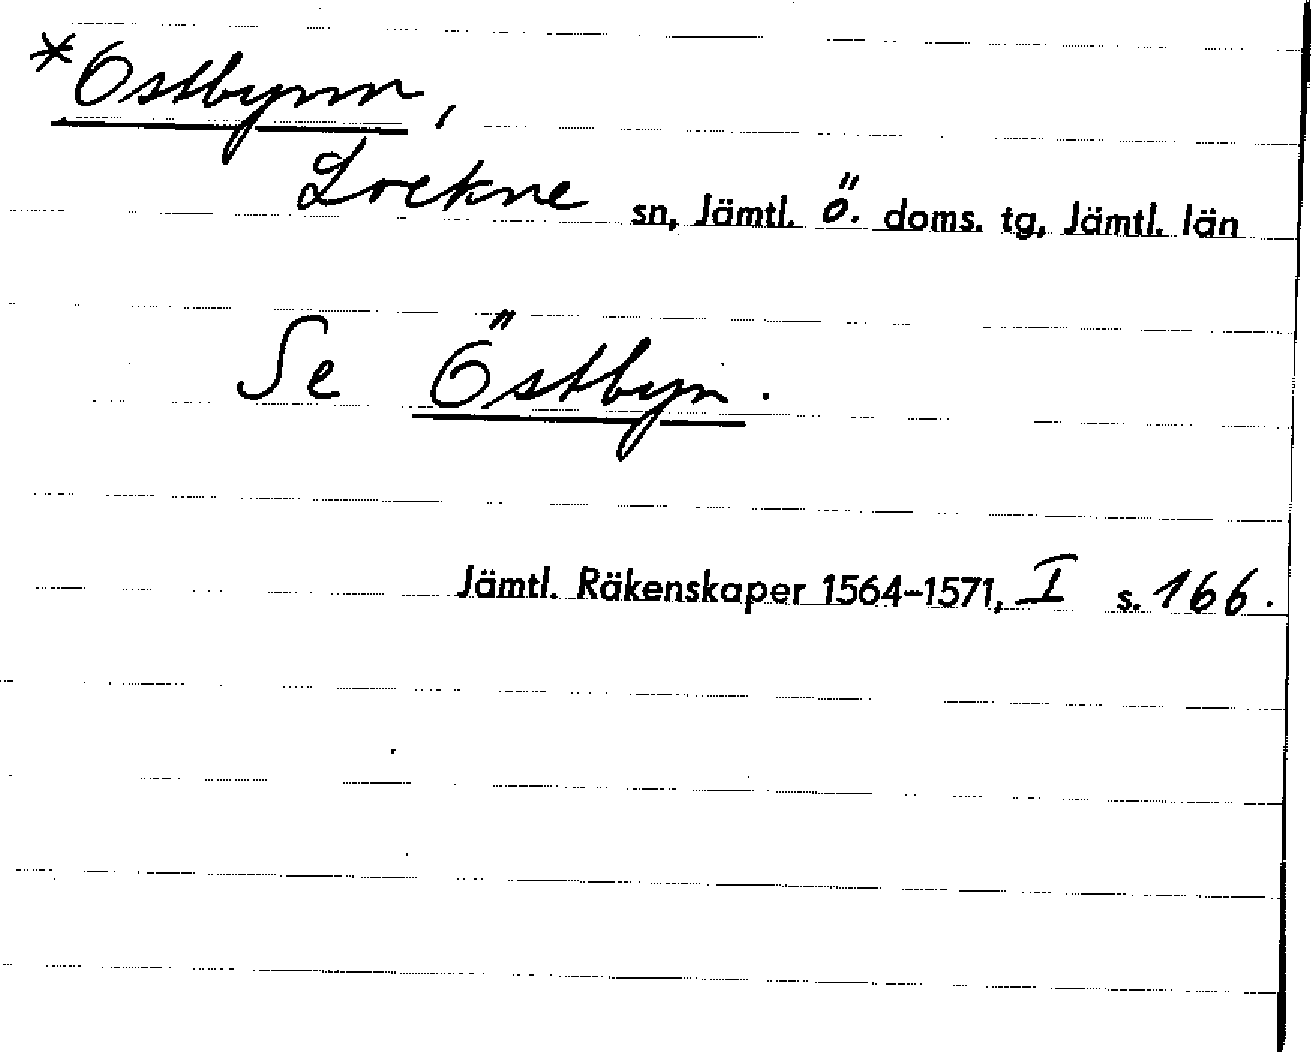 *Ostbynn,
Lockne sn, Jämtl. ö. doms. tg, Jämtl. län
Se Östbyn.
Jämtl. Räkenskaper 1564–1571, I s. 166.